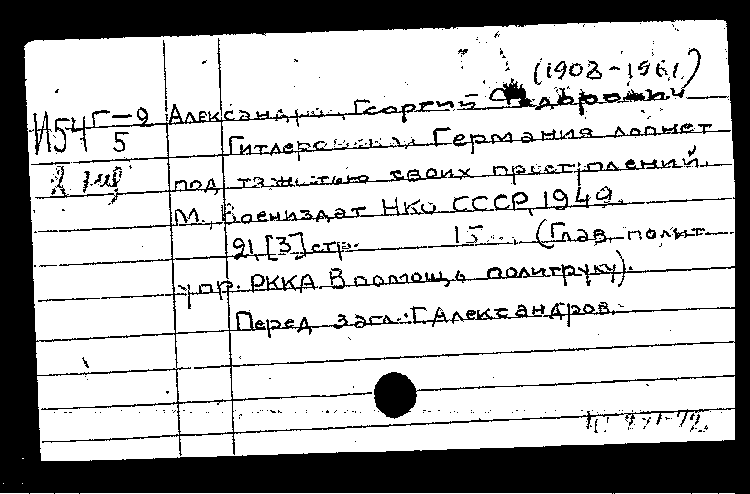 (1908-1961)
И54 Г-2/5
Александров, Георгий Федорович
2 экз
Гитлеровская Германия лопнет
под тяжестью своих преступлений.
М., Воениздат НКО СССР, 1949.
21, [3] стр. 15 (Глав. полит
упр. РККА. В помощь политруку).
Перед загл.: Г. Александров.